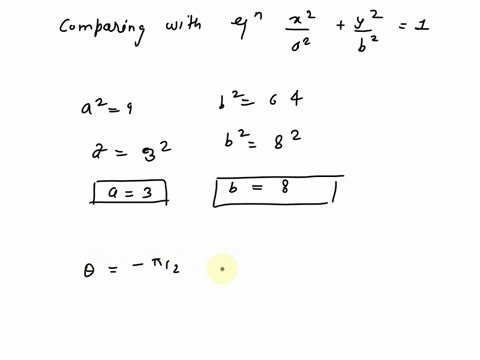 Comparing with eqn x²/a² + y²/b² = 1
a² = 9 b² = 64
a = 3² b² = 8²
a = 3 b = 8
θ = -π/2